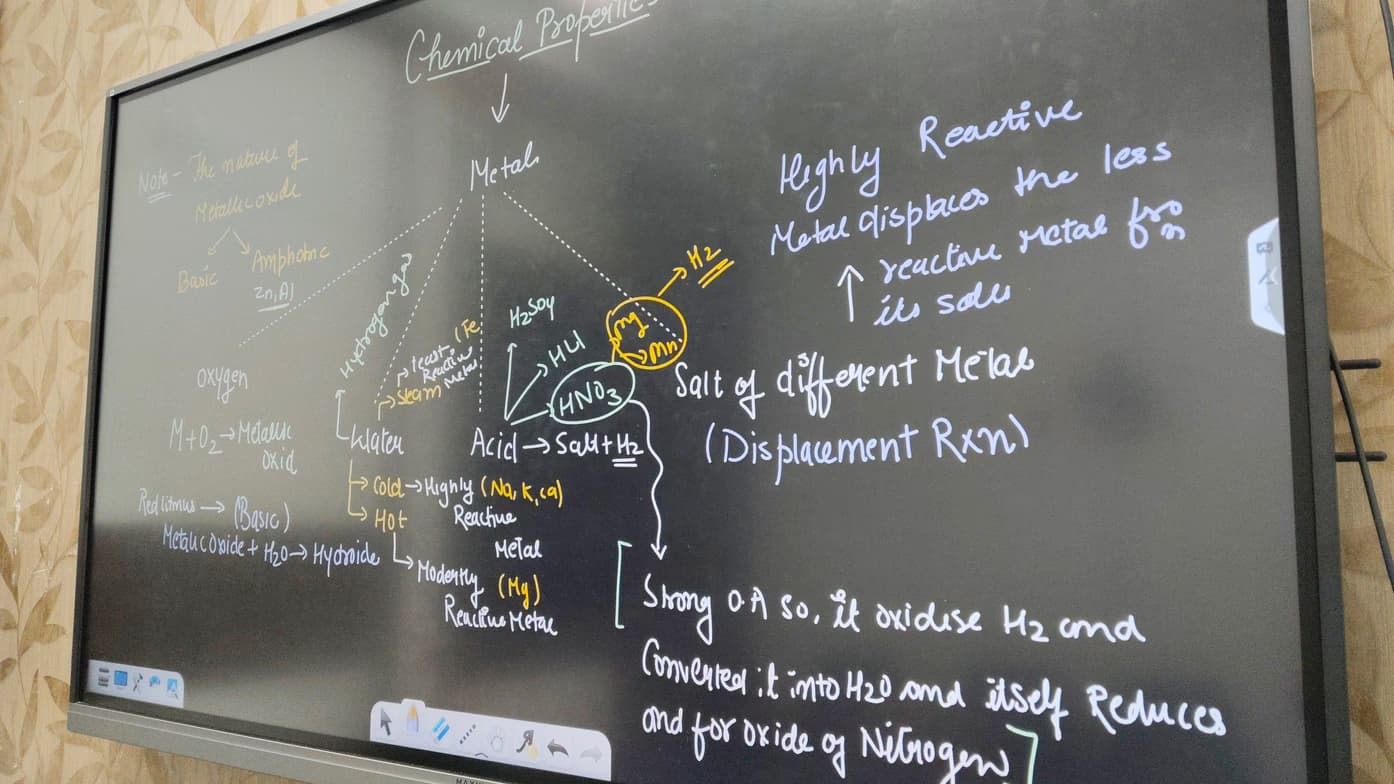 Chemical Properties
Metal
Note - The nature of
Metallic oxide
Basic
Amphoteric
Zn, Al
oxygen
M + O2 → Metallic
oxid
Red litmus → (Basic)
Metalic Oxide + H2O → Hydroide
Hydrogen gas
Water
Steam
least (Fe
Reactive
Metal
Cold → Highly (Na, K, ca)
Reactive
Metal
Hot
Modertly (Mg)
Reactive Metal
Acid → Salt + H2
H2SO4
HCl
HNO3
Mg
Mn
→ H2
Highly Reactive
Metal displaces the less
↑ reactive Metal from
its salts
Salt of different Metal
(Displacement Rxn)
[Strong O.A so, it oxidise H2 and
Converted it into H2O and itself Reduces
and for oxide of Nitrogen]